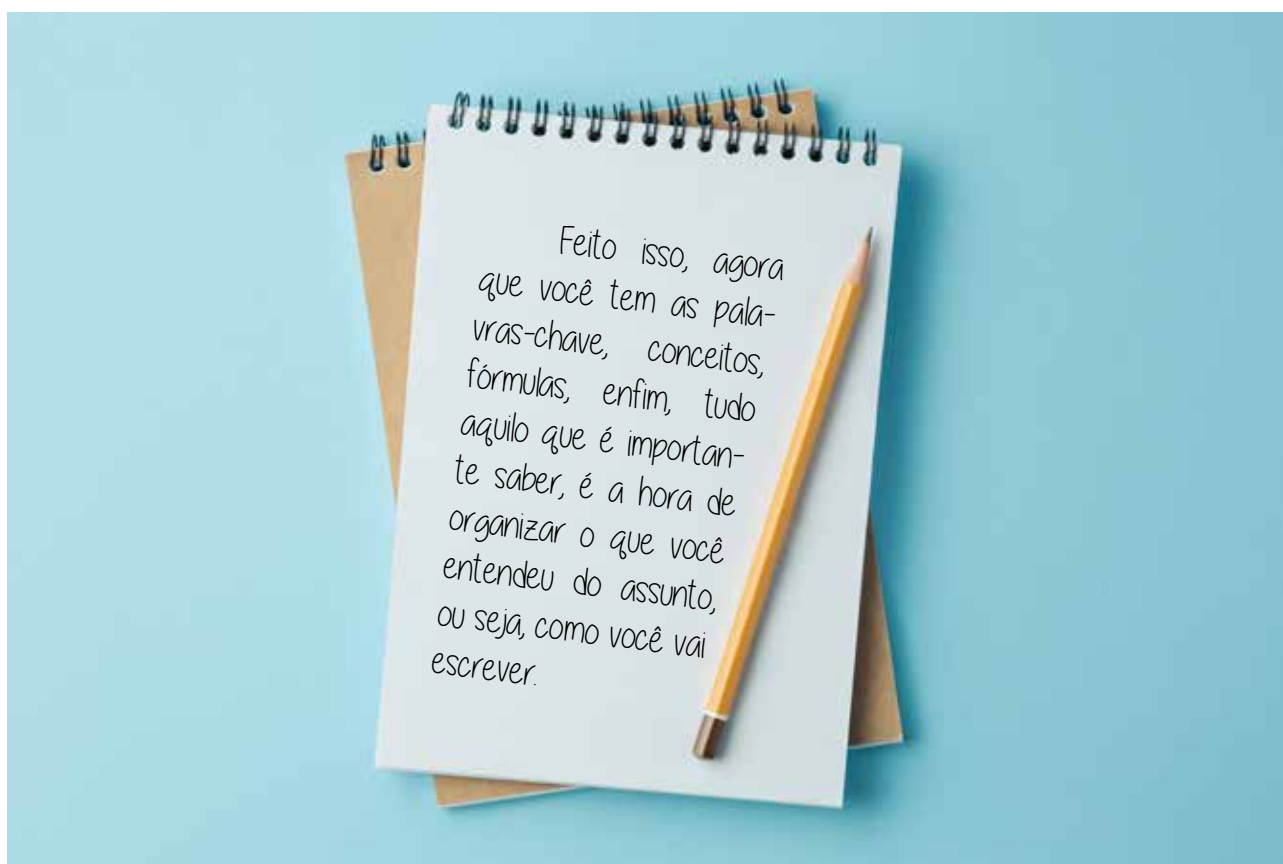 Feito isso, agora
que você tem as pala-
vras-chave, conceitos,
fórmulas, enfim, tudo
aquilo que é importan-
te saber, é a hora de
organizar o que você
entendeu do assunto,
ou seja, como você vai
escrever.